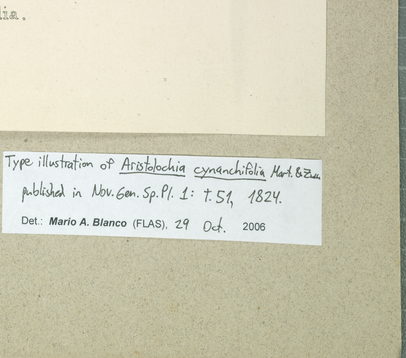 lia.
Type illustration of Aristolochia cynanchifolia Mart. & Zucc.
published in Nov. Gen. Sp. Pl. 1: T. 51, 1824.
Det.: Mario A. Blanco (FLAS), 29 Oct. 2006